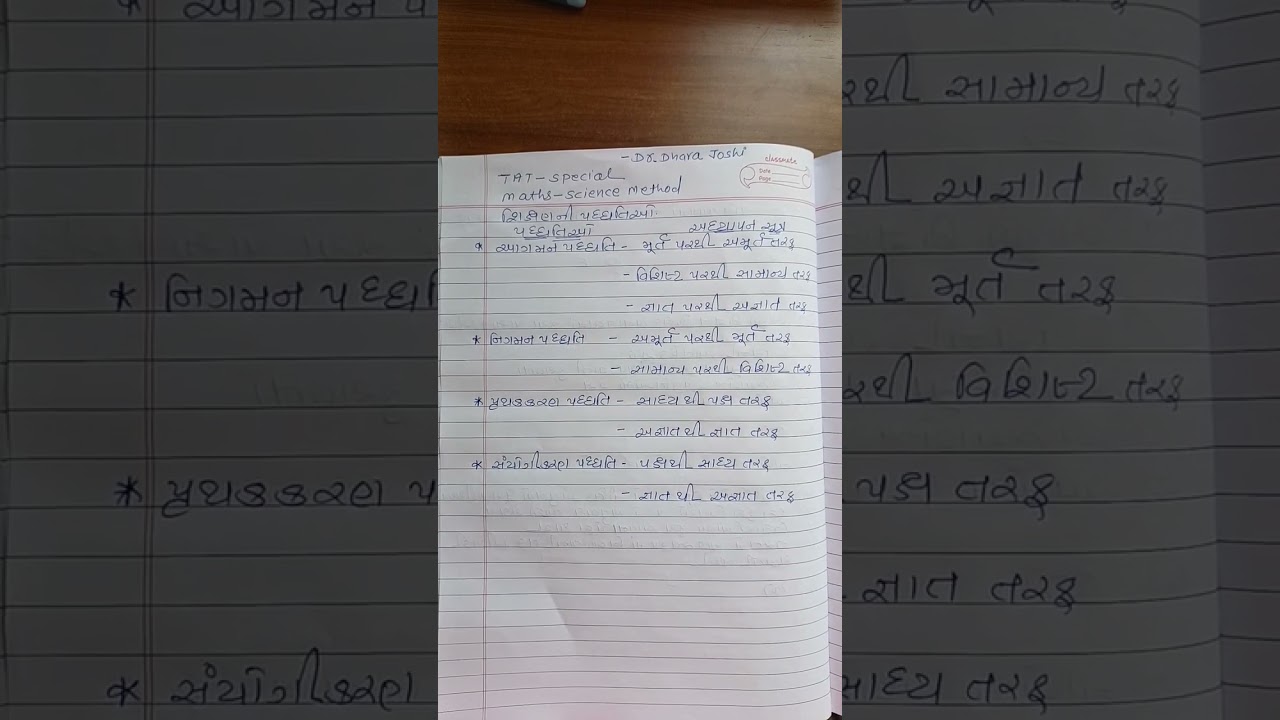 - Dr. Dhara Joshi
classmate
Date
Page
TAT - special
maths - science method
શિક્ષણની પધ્ધતિઓ
પધ્ધતિઓ અધ્યાપન સૂત્ર
* આગમન પધ્ધતિ - મૂર્ત પરથી અમૂર્ત તરફ
- વિશિષ્ટ પરથી સામાન્ય તરફ
- જ્ઞાત પરથી અજ્ઞાત તરફ
* નિગમન પધ્ધતિ - અમૂર્ત પરથી મૂર્ત તરફ
- સામાન્ય પરથી વિશિષ્ટ તરફ
* પૃથક્કકરણ પધ્ધતિ - સાધ્ય થી પક્ષ તરફ
- અજ્ઞાત થી જ્ઞાત તરફ
* સંયોગીકરણ પધ્ધતિ - પક્ષ થી સાધ્ય તરફ
- જ્ઞાત થી અજ્ઞાત તરફ